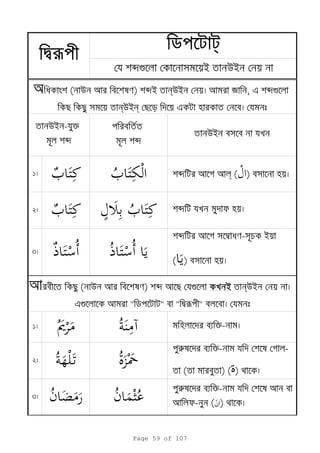 দ্বিরূপী
ডিপটোট্
যে শব্দগুলো কোনোসময়েই তানউইন নেয় না
অধিকাংশ (নাউন আর বিশেষণ) শব্দই তান্উইন নেয়। আমরা জানি, এ শব্দগুলো
কিছু কিছু সময়ে তান্উইন্ ছেড়ে দিয়ে একটা হারকাত নেবে। যেমনঃ
তানউইন-যুক্ত মূল শব্দ পরিবর্তিত মূল শব্দ তানউইন বসবে না যখন
১। كِتَابٌ الْكِتَابُ শব্দটির আগে আল্ (الْ) বসানো হয়।
২। كِتَابٌ كِتَابُ بِلَالٍ শব্দটি যখন মুদাফ হয়।
৩। أُسْتَاذٌ يَا أُسْتَاذُ শব্দটির আগে সম্বোধণ-সূচক ইয়া
(يَا) বসানো হয়।
আরবীতে কিছু (নাউন আর বিশেষণ) শব্দ আছে যেগুলো কখনই তান্উইন নেয় না।
এগুলোকে আমরা "ডিপটোট" বা "দ্বিরূপী" বলবো। যেমনঃ
১। مَرْيَمُ آمِنَةُ মহিলাদের ব্যক্তি-নাম।
২। طَلْحَةُ حَمْزَةُ পুরুষদের ব্যক্তি-নাম যদি শেষে গোল-
তা (তা মারবুতা) (ة) থাকে।
৩। رَمَضَانُ عُثْمَانُ পুরুষদের ব্যক্তি-নাম যদি শেষ আন বা
আলিফ-নুন (ان) থাকে।
Page 59 of 107